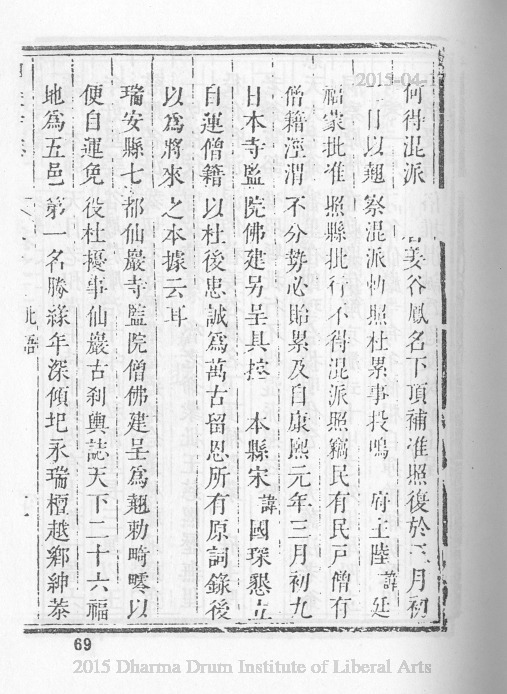 何得混派　姜谷鳳名下頂補准照復於三月初
一日以乞察混派勅照杜累事投鳴　府主陸諱廷
福蒙批准照縣批行不得混派照竊民有民戶僧有
僧籍涇渭不分勢必貽累及自康熙元年三月初九
日本寺監院佛建另呈具控　本縣宋諱國琛懇立
自運僧籍以杜後患誠為萬古留恩所有原詞錄後
以為將來之本據云耳
瑞安縣七都仙巖寺監院僧佛建呈為勅畸零以
便自運免役杜擾事仙巖古剎輿誌天下二十六福
地為五邑第一名勝緣年深傾圮永瑞檀越鄉紳恭
69
2015 Dharma Drum Institute of Liberal Arts
2015-04-